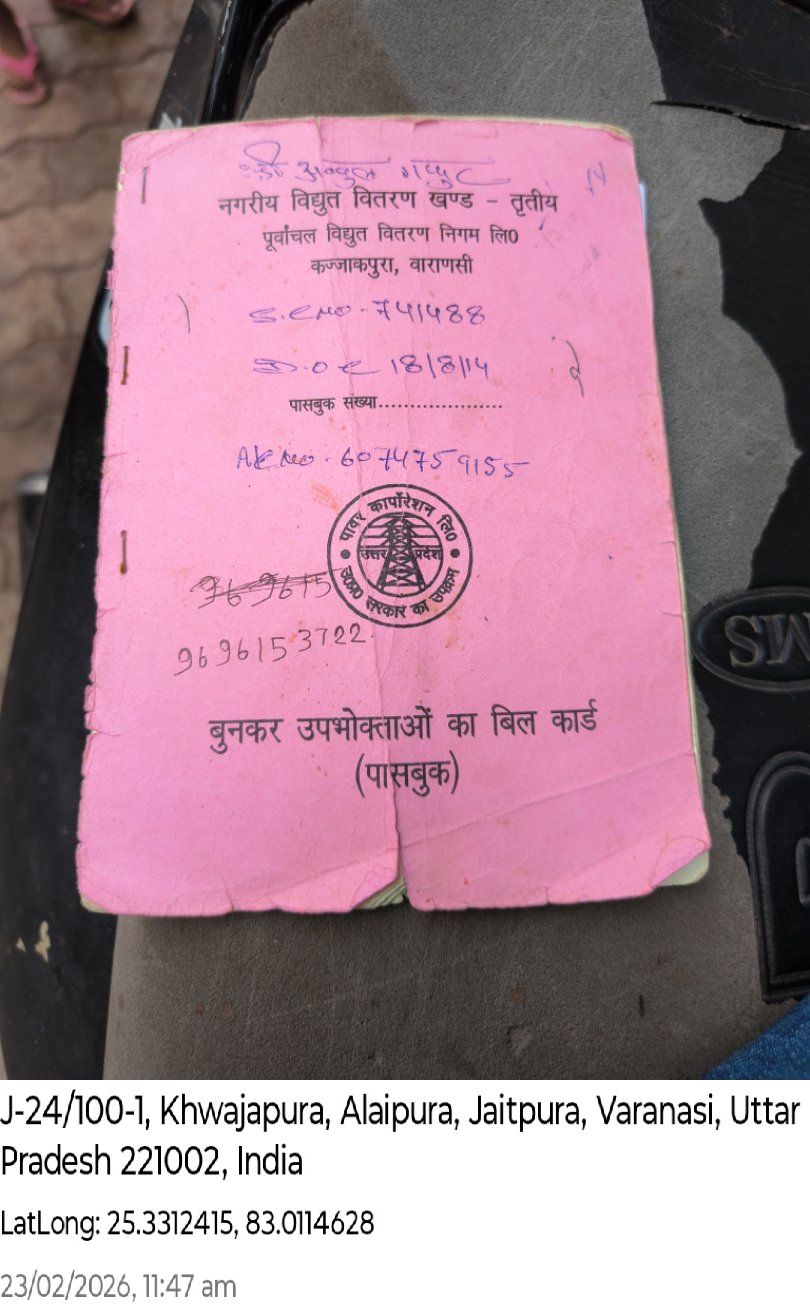 श्री अब्दुल गफ्फूर
नगरीय विद्युत वितरण खण्ड - तृतीय
पूर्वांचल विद्युत वितरण निगम लि0
कज्जाकपुरा, वाराणसी
S.C no - 741488
D.O.C 18/8/14
पासबुक संख्या....................
A/C no - 6074759155
पावर कार्पोरेशन लि0
उत्तर प्रदेश
उ0प्र0 सरकार का उपक्रम
969615
9696153722
बुनकर उपभोक्ताओं का बिल कार्ड
(पासबुक)
J-24/100-1, Khwajapura, Alaipura, Jaitpura, Varanasi, Uttar
Pradesh 221002, India
LatLong: 25.3312415, 83.0114628
23/02/2026, 11:47 am